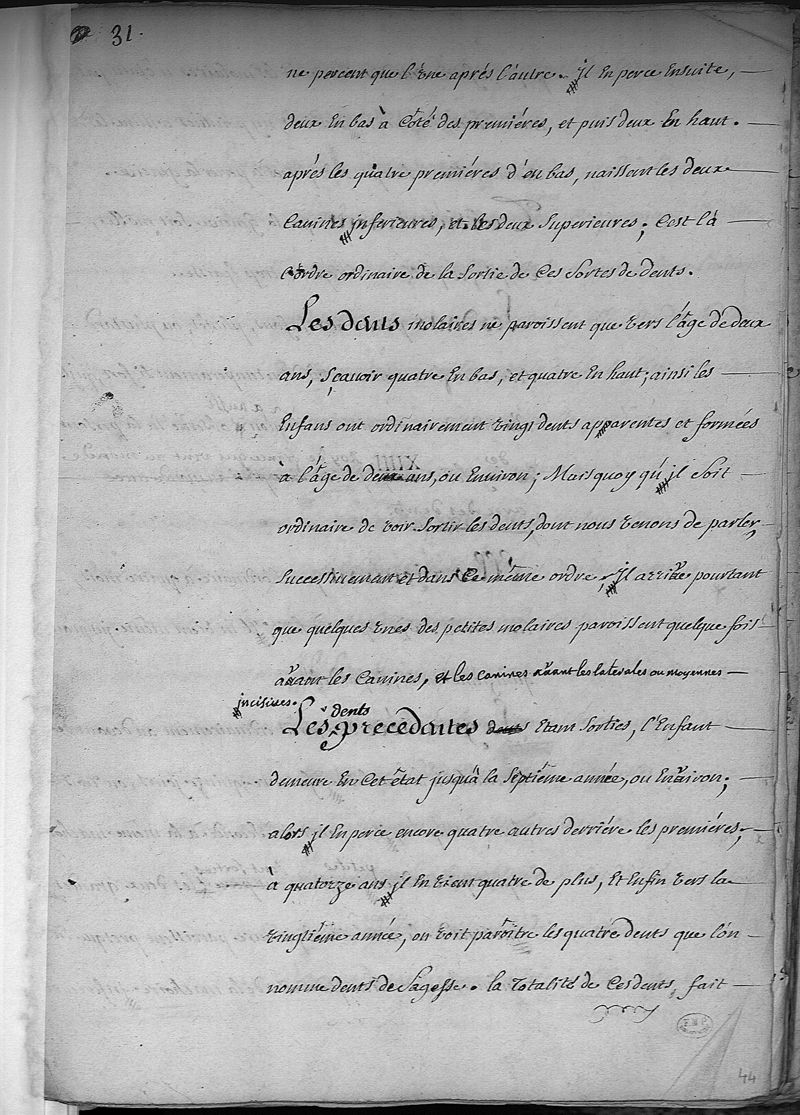 31.
ne percent que l'une aprés l'autre. il En perce Ensuite,
deux En bas à Côté des premiéres, et puis deux En haut.
aprés les quatre premiéres d'en bas, naissent les deux
Canines inferieures, et les deux Superieures; C'est là
l'ordre ordinaire de la Sortie de Ces Sortes de dents.
Les dents molaires ne paroissent que vers l'âge de deux
ans, Sçavoir quatre En bas, et quatre En haut; ainsi les
Enfans ont ordinairement vingt dents apparentes et formées
à l'âge de deux ans, ou Environ; Mais quoy qu'il Soit
ordinaire de voir Sortir les dents, dont nous venons de parler,
Successivement et dans Ce même ordre, il arrive pourtant
que quelques unes des petites molaires paroissent quelque fois
avant les Canines, et les canines avant les laterales ou moyennes
incisives.
dents
Les precedentes dents Etant Sorties, l'Enfant
demeure En Cet état jusqu'à la Septiéme année, ou Environ;
alors il En perce encore quatre autres derriére les premiéres;
à quatorze ans il En vient quatre de plus, Et Enfin vers la
vingtiéme année, on voit paroître les quatre dents que l'on
nomme dents de Sagesse. la Totalité de Ces dents, fait
44